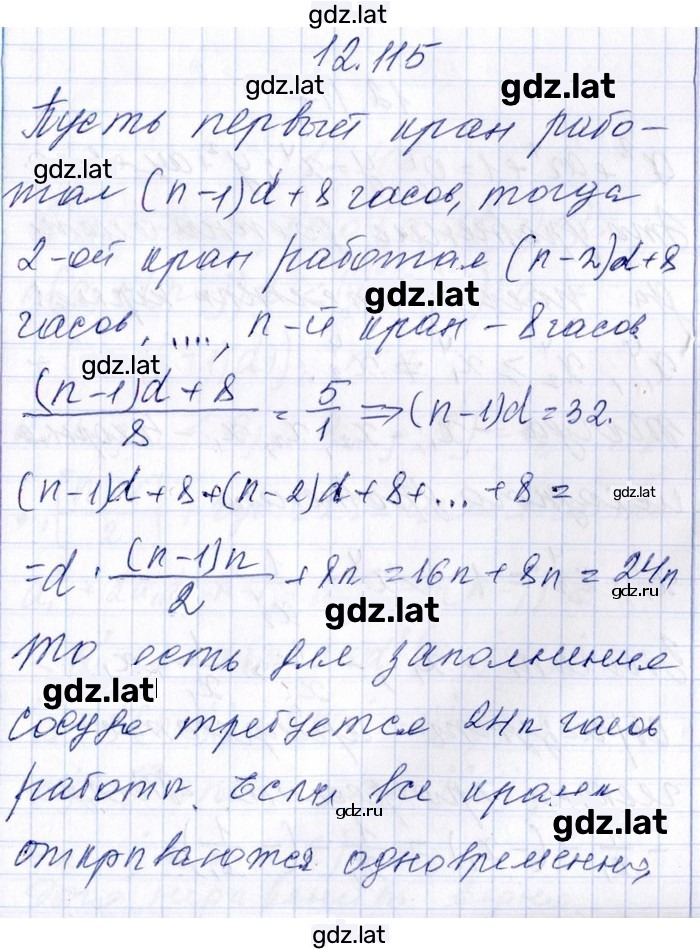 gdz.lat
12.115
gdz.lat
gdz.lat
Пусть первый кран рабо-
gdz.lat
тал (n-1)d+8 часов, тогда
2-ой кран работал (n-2)d+8
gdz.lat
часов, ...., n-й кран - 8 часов
gdz.lat
(n-1)d+8 / 8 = 5/1 ⇒ (n-1)d = 32.
(n-1)d+8+(n-2)d+8+...+8 =
gdz.lat
= d · (n-1)n / 2 + 8n = 16n + 8n = 24n
gdz.ru
gdz.lat
то есть для заполнения
gdz.lat
сосуда требуется 24n часов
работы. Если все краны
gdz.ru
gdz.lat
открываются одновременно,
gdz.lat